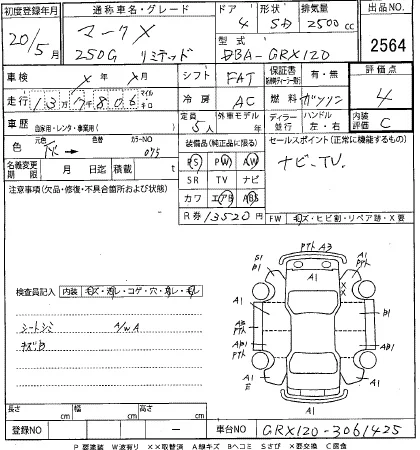 初度登録年月 通称車名・グレード ドア 形状 排気量 出品NO
20/5月 マークX 4 SD 2500cc
250G リミテッド 型式 DBA-GRX120 2564
車検 × 年 × 月 シフト FAT 保証書 有・無 評価点
走行 137806 マイル キロ 冷房 AC 燃料 ガソリン 4
車歴 自家用・レンタ・事業用( ) 定員 5人 外車モデル ディーラー 並行 ハンドル 左・右 内装評価 C
色 元色 色替 カラーNO 075 装備品(純正品に限る) セールスポイント(正常に機能するもの)
名義変更期限 月 日迄 積載 t PS PW AW ナビ・TV.
注意事項(欠品・修復・不具合箇所および状態) SR TV ナビ
カワ エアB ABS
R券 13520円 FW キズ・ヒビ割・リペア跡・X要
検査員記入 内装
シートシミ A/W A
キズ
長さ cm 幅 cm 高さ cm
登録NO ー 車台NO GRX120-3061425
P 要塗装 W波有り ××取替済 A線キズ Bヘコミ Sさび ×要交換 C腐食